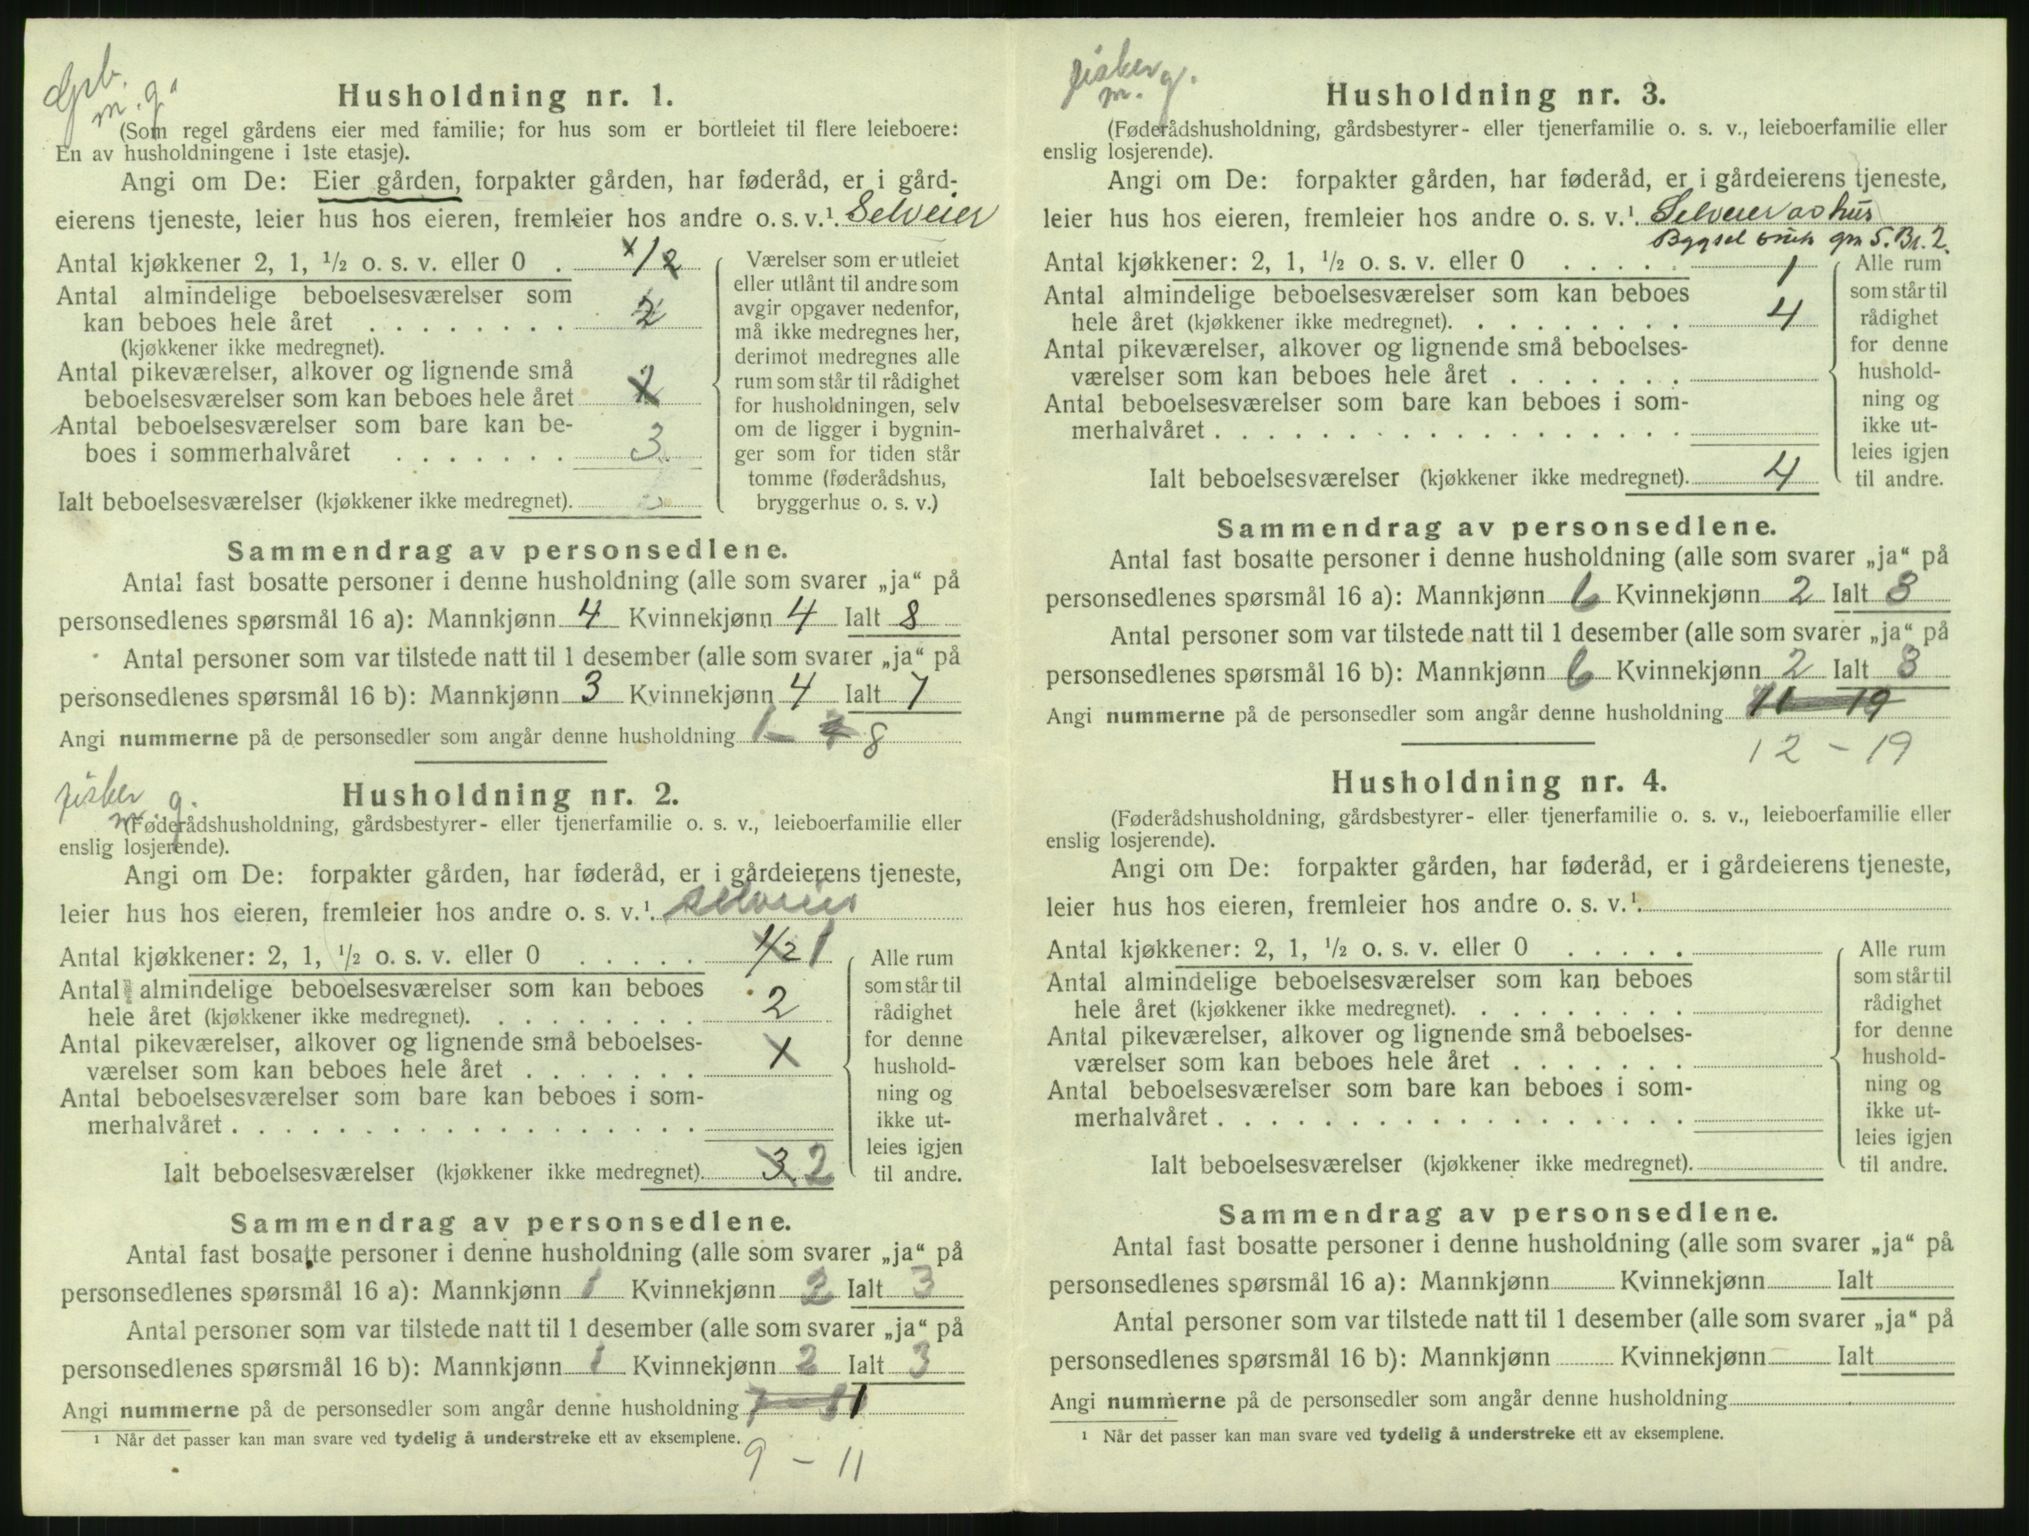 Grb.
m. g.
Husholdning nr. 1.
(Som regel gårdens eier med familie; for hus som er bortleiet til flere leieboere:
En av husholdningene i 1ste etasje).
Angi om De: Eier gården, forpakter gården, har føderåd, er i gård-
eierens tjeneste, leier hus hos eieren, fremleier hos andre o. s. v.¹. Selveier
Antal kjøkkener 2, 1, ½ o. s. v. eller 0 . x 1/2
Antal almindelige beboelsesværelser som
kan beboes hele året . . . . . . . . 2
(kjøkkener ikke medregnet).
Antal pikeværelser, alkover og lignende små
beboelsesværelser som kan beboes hele året
Antal beboelsesværelser som bare kan be-
boes i sommerhalvåret . . . . . . . 3
Ialt beboelsesværelser (kjøkkener ikke medregnet).
Værelser som er utleiet
eller utlånt til andre som
avgir opgaver nedenfor,
må ikke medregnes her,
derimot medregnes alle
rum som står til rådighet
for husholdningen, selv
om de ligger i bygnin-
ger som for tiden står
tomme (føderådshus,
bryggerhus o. s. v.)
Sammendrag av personsedlene.
Antal fast bosatte personer i denne husholdning (alle som svarer „ja“ på
personsedlenes spørsmål 16 a): Mannkjønn 4 Kvinnekjønn 4 Ialt 8
Antal personer som var tilstede natt til 1 desember (alle som svarer „ja“ på
personsedlenes spørsmål 16 b): Mannkjønn 3 Kvinnekjønn 4 Ialt 7
Angi nummerne på de personsedler som angår denne husholdning 1 – 8
fisker
m. g.
Husholdning nr. 2.
(Føderådshusholdning, gårdsbestyrer- eller tjenerfamilie o. s. v., leieboerfamilie eller
enslig losjerende).
Angi om De: forpakter gården, har føderåd, er i gårdeierens tjeneste,
leier hus hos eieren, fremleier hos andre o. s. v.¹. selveier
Antal kjøkkener: 2, 1, ½ o. s. v. eller 0 . . . . . 1/2 1
Antal almindelige beboelsesværelser som kan beboes
hele året (kjøkkener ikke medregnet). . . . . . . . . 2
Antal pikeværelser, alkover og lignende små beboelses-
værelser som kan beboes hele året . . . . . . .
Antal beboelsesværelser som bare kan beboes i som-
merhalvåret . . . . . . . . . . . . . . . . . .
Ialt beboelsesværelser (kjøkkener ikke medregnet). 3 2
Alle rum
som står til
rådighet
for denne
hushold-
ning og
ikke ut-
leies igjen
til andre.
Sammendrag av personsedlene.
Antal fast bosatte personer i denne husholdning (alle som svarer „ja“ på
personsedlenes spørsmål 16 a): Mannkjønn 1 Kvinnekjønn 2 Ialt 3
Antal personer som var tilstede natt til 1 desember (alle som svarer „ja“ på
personsedlenes spørsmål 16 b): Mannkjønn 1 Kvinnekjønn 2 Ialt 3
Angi nummerne på de personsedler som angår denne husholdning
¹ Når det passer kan man svare ved tydelig å understreke ett av eksemplene.
9 – 11
fisker
m. g.
Husholdning nr. 3.
(Føderådshusholdning, gårdsbestyrer- eller tjenerfamilie o. s. v., leieboerfamilie eller
enslig losjerende).
Angi om De: forpakter gården, har føderåd, er i gårdeierens tjeneste,
leier hus hos eieren, fremleier hos andre o. s. v.¹. Selveier av hus
Bygsel bruk grn 5. Br. 2.
Antal kjøkkener: 2, 1, ½ o. s. v. eller 0 . . . . . 1
Antal almindelige beboelsesværelser som kan beboes
hele året (kjøkkener ikke medregnet). . . . . . . . . 4
Antal pikeværelser, alkover og lignende små beboelses-
værelser som kan beboes hele året . . . . . . .
Antal beboelsesværelser som bare kan beboes i som-
merhalvåret . . . . . . . . . . . . . . . . . .
Ialt beboelsesværelser (kjøkkener ikke medregnet). 4
Alle rum
som står til
rådighet
for denne
hushold-
ning og
ikke ut-
leies igjen
til andre.
Sammendrag av personsedlene.
Antal fast bosatte personer i denne husholdning (alle som svarer „ja“ på
personsedlenes spørsmål 16 a): Mannkjønn 6 Kvinnekjønn 2 Ialt 8
Antal personer som var tilstede natt til 1 desember (alle som svarer „ja“ på
personsedlenes spørsmål 16 b): Mannkjønn 6 Kvinnekjønn 2 Ialt 8
Angi nummerne på de personsedler som angår denne husholdning 11 – 19
12 – 19
Husholdning nr. 4.
(Føderådshusholdning, gårdsbestyrer- eller tjenerfamilie o. s. v., leieboerfamilie eller
enslig losjerende).
Angi om De: forpakter gården, har føderåd, er i gårdeierens tjeneste,
leier hus hos eieren, fremleier hos andre o. s. v.¹.
Antal kjøkkener: 2, 1, ½ o. s. v. eller 0 . . . . .
Antal almindelige beboelsesværelser som kan beboes
hele året (kjøkkener ikke medregnet). . . . . . . . .
Antal pikeværelser, alkover og lignende små beboelses-
værelser som kan beboes hele året . . . . . . .
Antal beboelsesværelser som bare kan beboes i som-
merhalvåret . . . . . . . . . . . . . . . . . .
Ialt beboelsesværelser (kjøkkener ikke medregnet).
Alle rum
som står til
rådighet
for denne
hushold-
ning og
ikke ut-
leies igjen
til andre.
Sammendrag av personsedlene.
Antal fast bosatte personer i denne husholdning (alle som svarer „ja“ på
personsedlenes spørsmål 16 a): Mannkjønn Kvinnekjønn Ialt
Antal personer som var tilstede natt til 1 desember (alle som svarer „ja“ på
personsedlenes spørsmål 16 b): Mannkjønn Kvinnekjønn Ialt
Angi nummerne på de personsedler som angår denne husholdning
¹ Når det passer kan man svare ved tydelig å understreke ett av eksemplene.